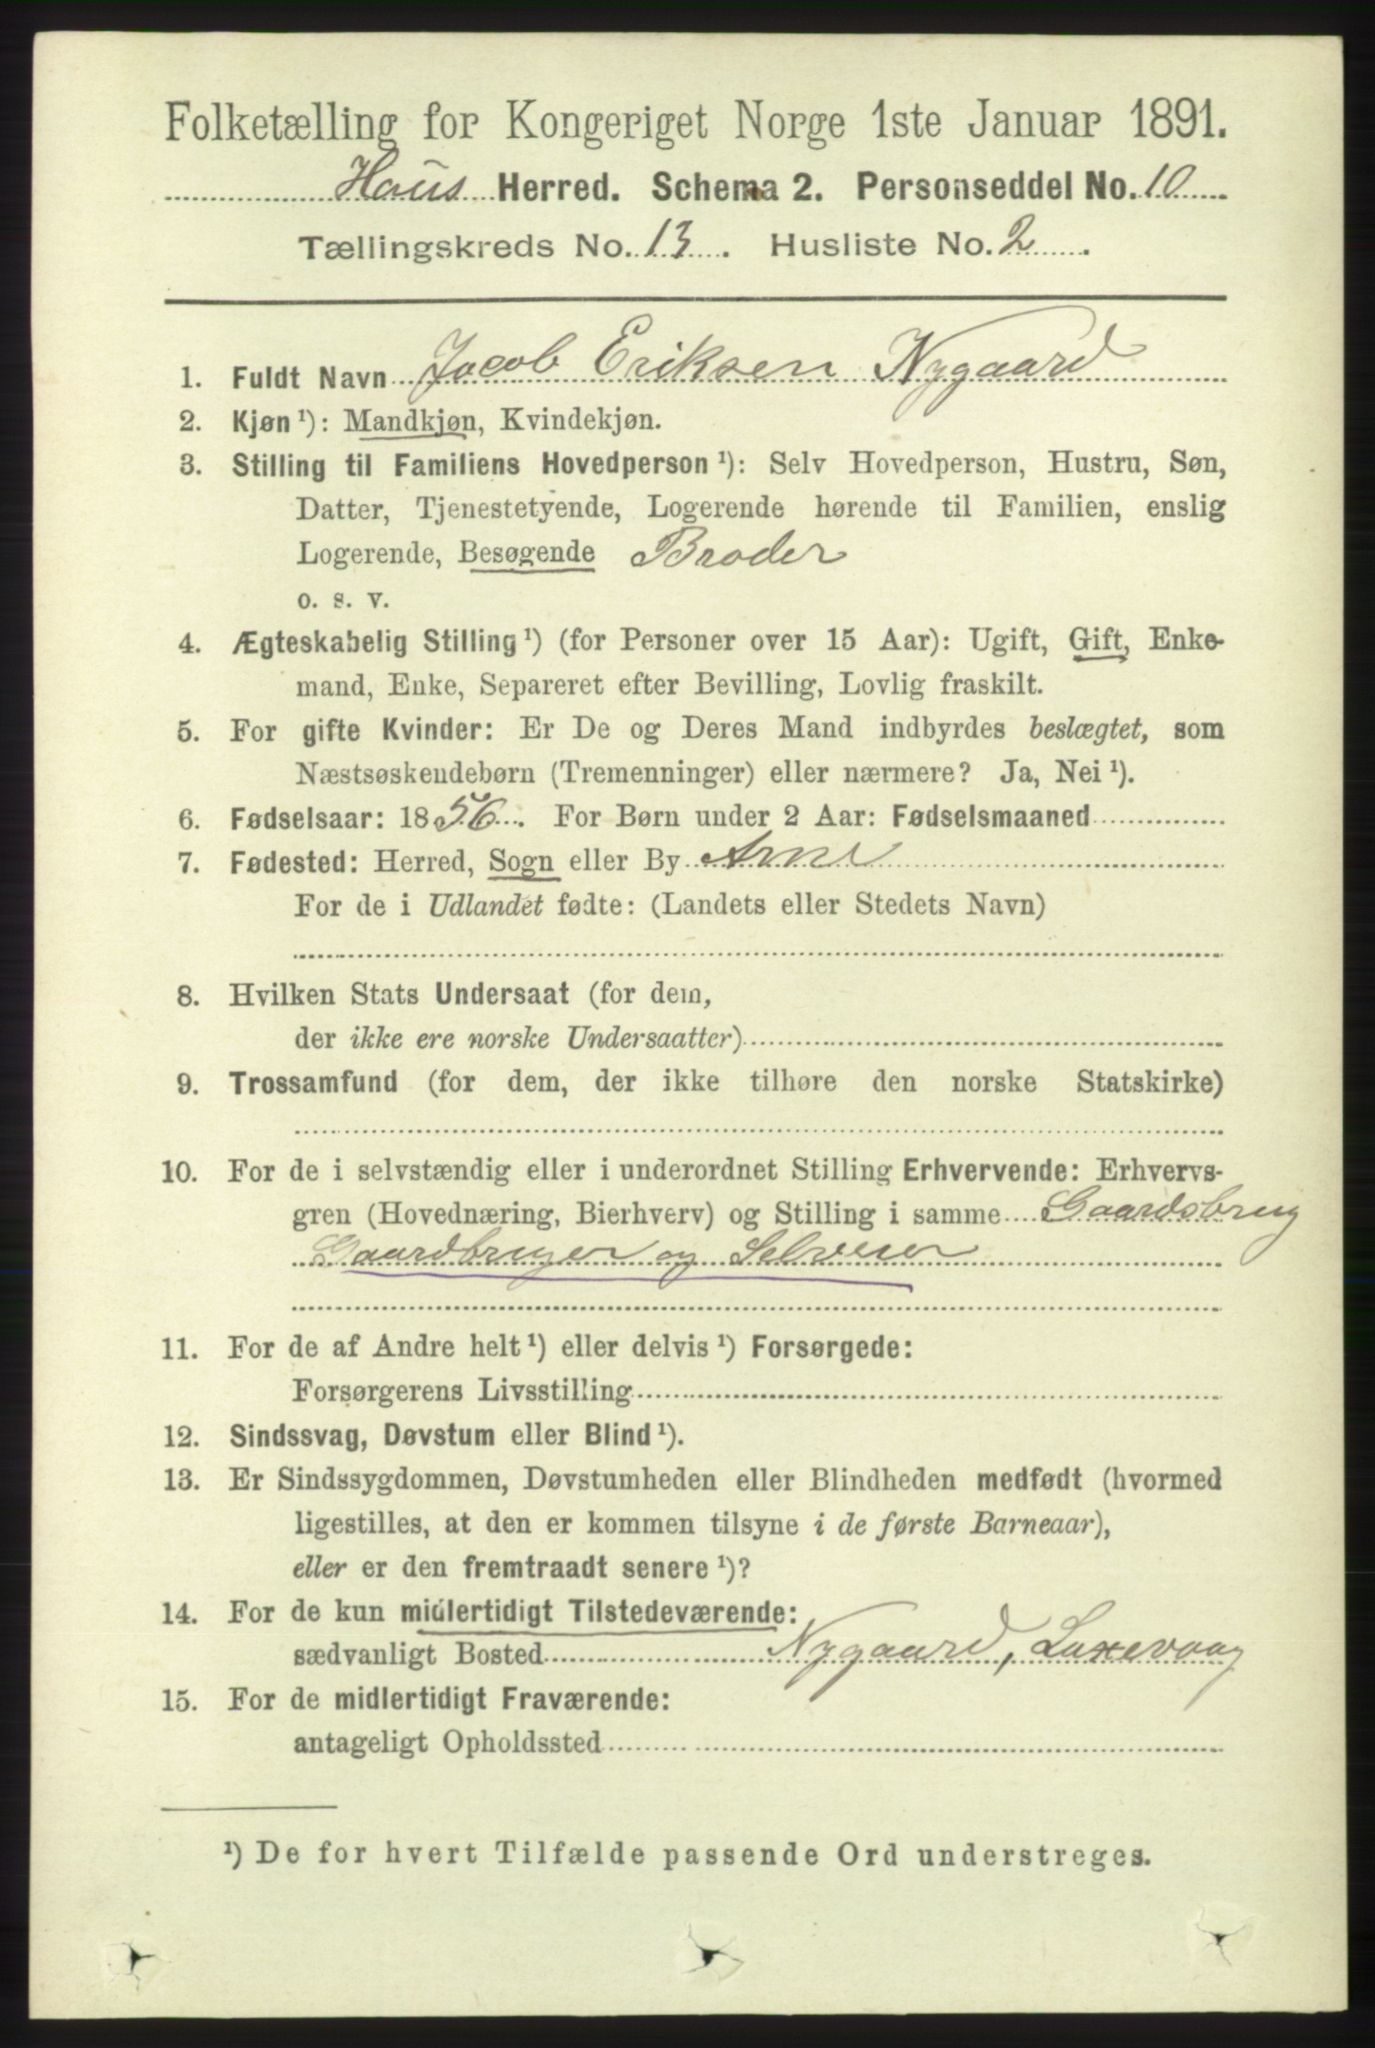 Folketælling for Kongeriget Norge 1ste Januar 1891.
Haus Herred. Schema 2. Personseddel No. 10
Tællingskreds No. 13. Husliste No. 2.
1. Fuldt Navn Jacob Eriksen Nygaard
2. Kjøn ¹): Mandkjøn, Kvindekjøn.
3. Stilling til Familiens Hovedperson ¹): Selv Hovedperson, Hustru, Søn,
Datter, Tjenestetyende, Logerende hørende til Familien, enslig
Logerende, Besøgende Broder
o. s. v.
4. Ægteskabelig Stilling ¹) (for Personer over 15 Aar): Ugift, Gift, Enke-
mand, Enke, Separeret efter Bevilling, Lovlig fraskilt.
5. For gifte Kvinder: Er De og Deres Mand indbyrdes beslægtet, som
Næstsøskendebørn (Tremenninger) eller nærmere? Ja, Nei ¹).
6. Fødselsaar: 1856. For Børn under 2 Aar: Fødselsmaaned
7. Fødested: Herred, Sogn eller By Arne
For de i Udlandet fødte: (Landets eller Stedets Navn)
8. Hvilken Stats Undersaat (for dem,
der ikke ere norske Undersaatter)
9. Trossamfund (for dem, der ikke tilhøre den norske Statskirke)
10. For de i selvstændig eller i underordnet Stilling Erhvervende: Erhvervs-
gren (Hovednæring, Bierhverv) og Stilling i samme Gaardsbrug
Gaardbruger og Selveier
11. For de af Andre helt ¹) eller delvis ¹) Forsørgede:
Forsørgerens Livsstilling
12. Sindssvag, Døvstum eller Blind ¹).
13. Er Sindssygdommen, Døvstumheden eller Blindheden medfødt (hvormed
ligestilles, at den er kommen tilsyne i de første Barneaar),
eller er den fremtraadt senere ¹)?
14. For de kun midlertidigt Tilstedeværende:
sædvanligt Bosted Nygaard, Laxevaag
15. For de midlertidigt Fraværende:
antageligt Opholdssted
¹) De for hvert Tilfælde passende Ord understreges.